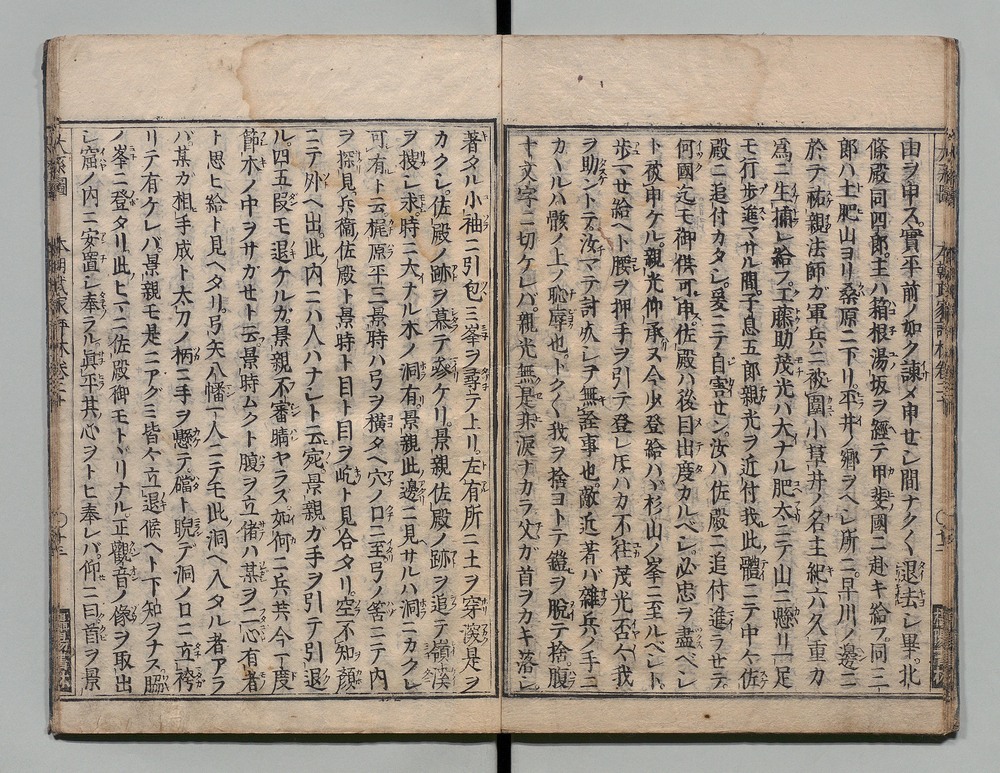 由ヲ申ス實平前ノ如ク諫メ申セシ間ナク〱退去シ畢。北
條殿同四郎主ハ箱根湯坂ヲ經テ甲斐國ニ赴キ給フ。同三
郎ハ土肥山ヨリ桑原ニ下リ。平井ノ郷ヲヘシ所ニ。早川ノ邊ニ
於テ祐親法師ガ軍兵ニ被圍小草井ノ名主紀六久重カ
爲ニ生捕レ給フ。工藤助茂光ハ大ナル肥太ニテ山ニ懸リ一足
モ行歩進マサル間。子息五郎親光ヲ近付我此體ニテ中々佐
殿ニ追付カタシ。爰ニテ自害セン。汝ハ佐殿ニ追付進ラセテ。
何國迄モ御供可申。佐殿ハ後目出度カルベシ。必忠ヲ盡ベシ
ト被申ケル。親光仰承ヌ今少登給ハヾ杉山ノ峯ニ至ルベシト。
歩マセ給ヘト腰ヲ押手ヲ引テ登レ𪜈ハカ不往茂光否々我
ヲ助ントテ。汝マテ討レヲ無詮事也。敵近著バ雜兵ノ手ニ
カヽルハ骸ノ上ノ恥辱也。トク〱我ヲ捨ヨトテ鎧ヲ脱テ捨腹
十文字ニ切ケレバ。親光無是非涙ナカラ父ガ首ヲカキ落シ
著タル小袖ニ引包三峯ヲ尋テ上リ。左有所ニ土ヲ穿深是ヲ
カクシ。佐殿ノ跡ヲ慕テ參ケリ。景親佐殿ノ跡ヲ追テ嶺溪
ヲ搜シ求。時ニ大ナル木ノ洞有。景親此邊ニ見サルハ洞ニカクレ
可有ト云。梶原平三景時ハ弓ヲ横タヘ穴ノ口ニ至弓ノ筈ニテ内
ヲ探見。兵衛佐殿ト景時ト目ト目ヲ屹ト見合タリ。空不知顔
ニテ外ヘ出。此内ニハ人ハナシト云。宛景親ガ手ヲ引テ引退
ル。四五段モ退ケルガ。景親不審晴ヤラズ如何ニ兵共今一度
節木ノ中ヲサガセト云。景時ムクト腹ヲ立偖ハ某ヲ二心有者
ト思ヒ給ト見ヘタリ。弓矢八幡一人ニテモ此洞ヘ入タル者アラ
バ。某ガ相手成ト太刀ノ柄ニ手ヲ懸テ。礑ト睨デ洞ノ口ニ立袴
リテ有ケレバ。景親モ是ニアグミ皆々立退候ヘト下知ヲナス。脇
ノ峯ニ登タリ。此ヒヾニ佐殿御モトヾリナル正觀音ノ像ヲ取出
シ窟ノ内ニ安置シ奉ラル。眞平其心ヲトヒ奉レバ。仰ニ曰首ヲ景